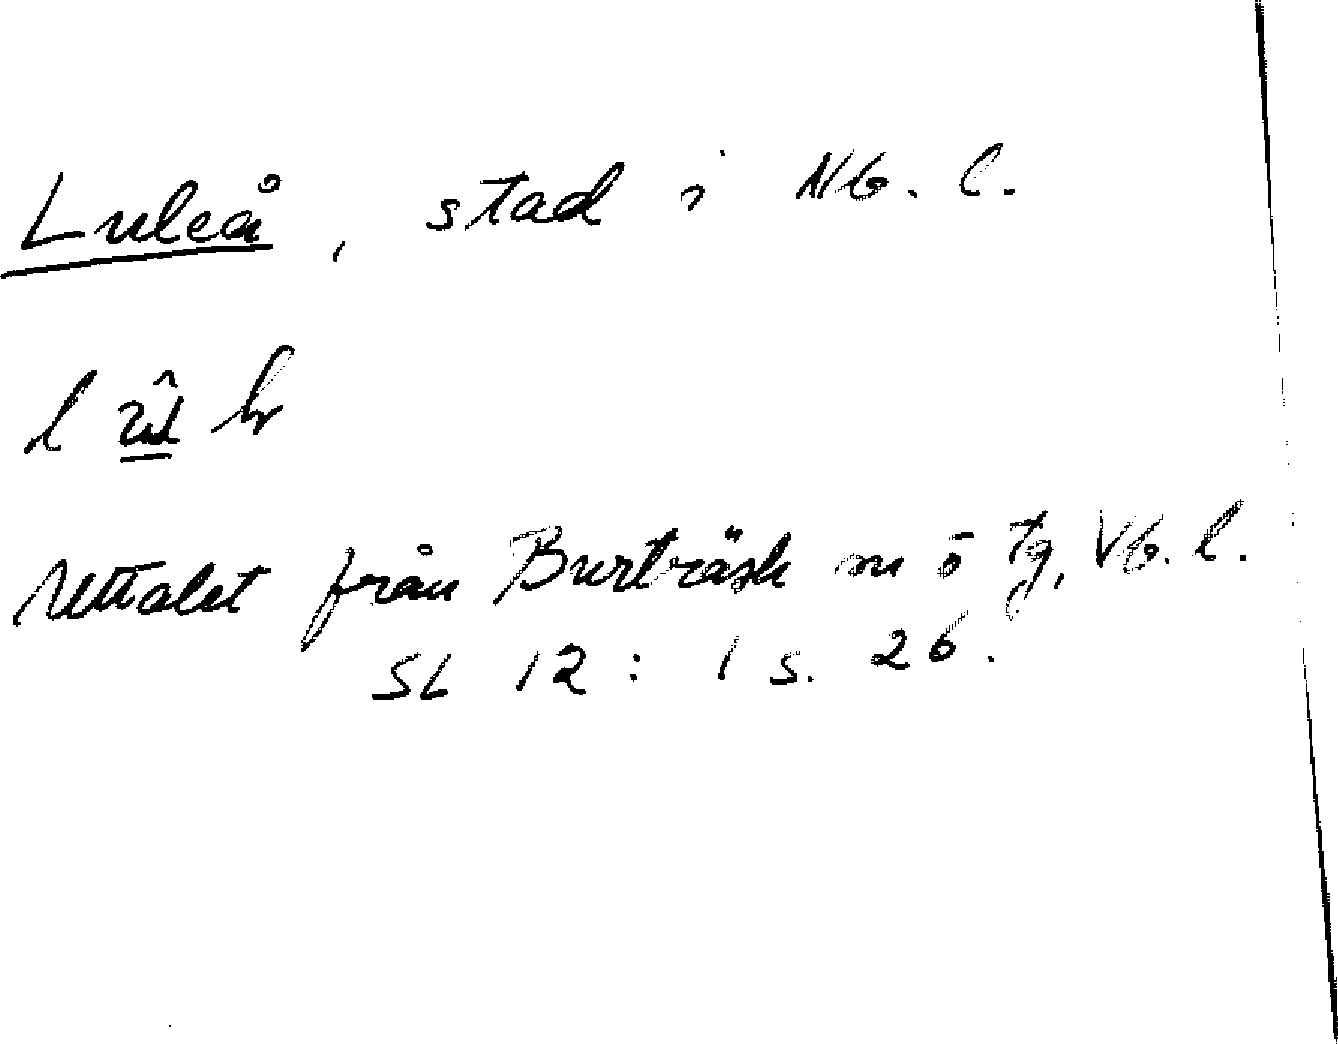 Luleå, stad i Nb. l.
Uttalet från Burträsk m ö tg, Vb. l.
SL 12: 1 s. 26.